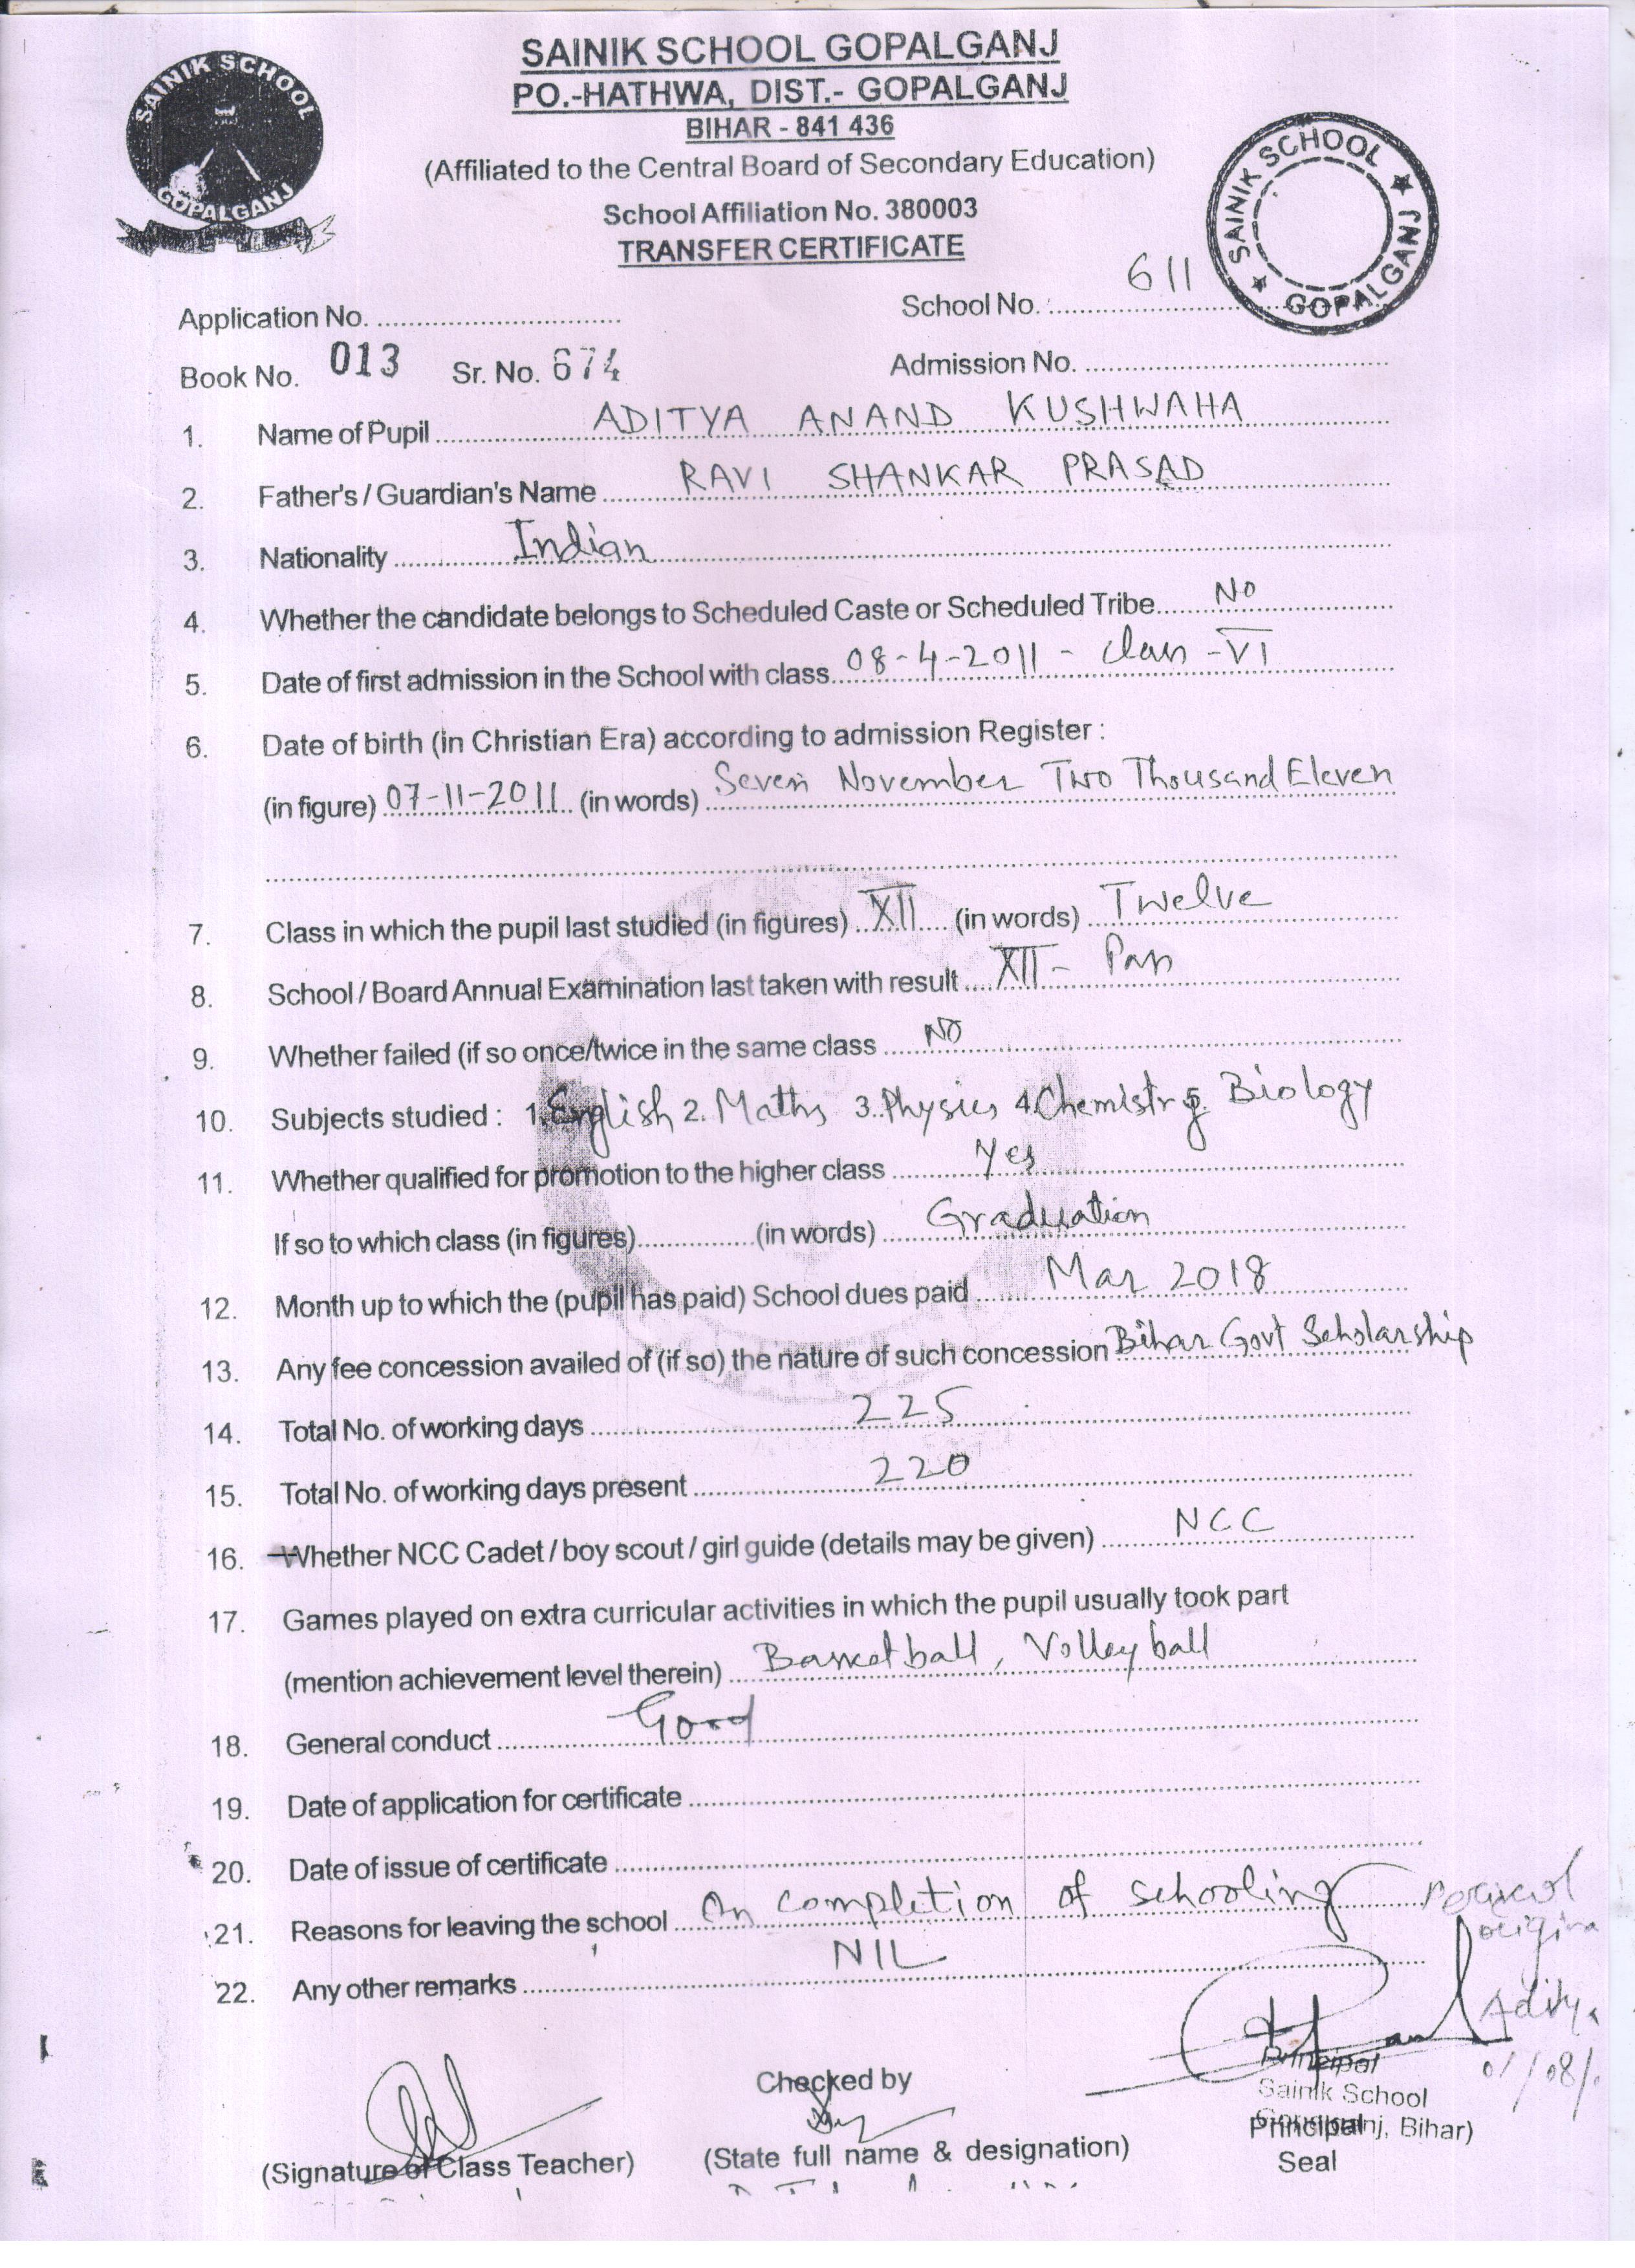 SAINIK SCHOOL GOPALGANJ
PO.-HATHWA, DIST.- GOPALGANJ
BIHAR - 841 436
(Affiliated to the Central Board of Secondary Education)
School Affiliation No. 380003
TRANSFER CERTIFICATE
SAINIK SCHOOL
GOPALGANJ
SAINIK SCHOOL
GOPALGANJ
Application No. ........ School No. : 611
Book No. 013 Sr. No. 674 Admission No. ........
1. Name of Pupil ADITYA ANAND KUSHWAHA
2. Father's / Guardian's Name RAVI SHANKAR PRASAD
3. Nationality Indian
4. Whether the candidate belongs to Scheduled Caste or Scheduled Tribe No
5. Date of first admission in the School with class 08-4-2011 - Class - VI
6. Date of birth (in Christian Era) according to admission Register :
(in figure) 07-11-2011 (in words) Seven November Two Thousand Eleven
7. Class in which the pupil last studied (in figures) XII (in words) Twelve
8. School / Board Annual Examination last taken with result XII - Pass
9. Whether failed (if so once/twice in the same class NO
10. Subjects studied : 1. English 2. Maths 3. Physics 4. Chemistry 5. Biology
11. Whether qualified for promotion to the higher class Yes
If so to which class (in figures) ........ (in words) Graduation
12. Month up to which the (pupil has paid) School dues paid Mar 2018
13. Any fee concession availed of (if so) the nature of such concession Bihar Govt Scholarship
14. Total No. of working days 225
15. Total No. of working days present 220
16. Whether NCC Cadet / boy scout / girl guide (details may be given) NCC
17. Games played on extra curricular activities in which the pupil usually took part
(mention achievement level therein) Basketball, Volleyball
18. General conduct Good
19. Date of application for certificate
20. Date of issue of certificate
21. Reasons for leaving the school On completion of schooling
22. Any other remarks NIL
Aditya
01/08/
Checked by
Principal
Sainik School
Gopalganj, Bihar)
(Signature of Class Teacher) (State full name & designation) Principal
Seal